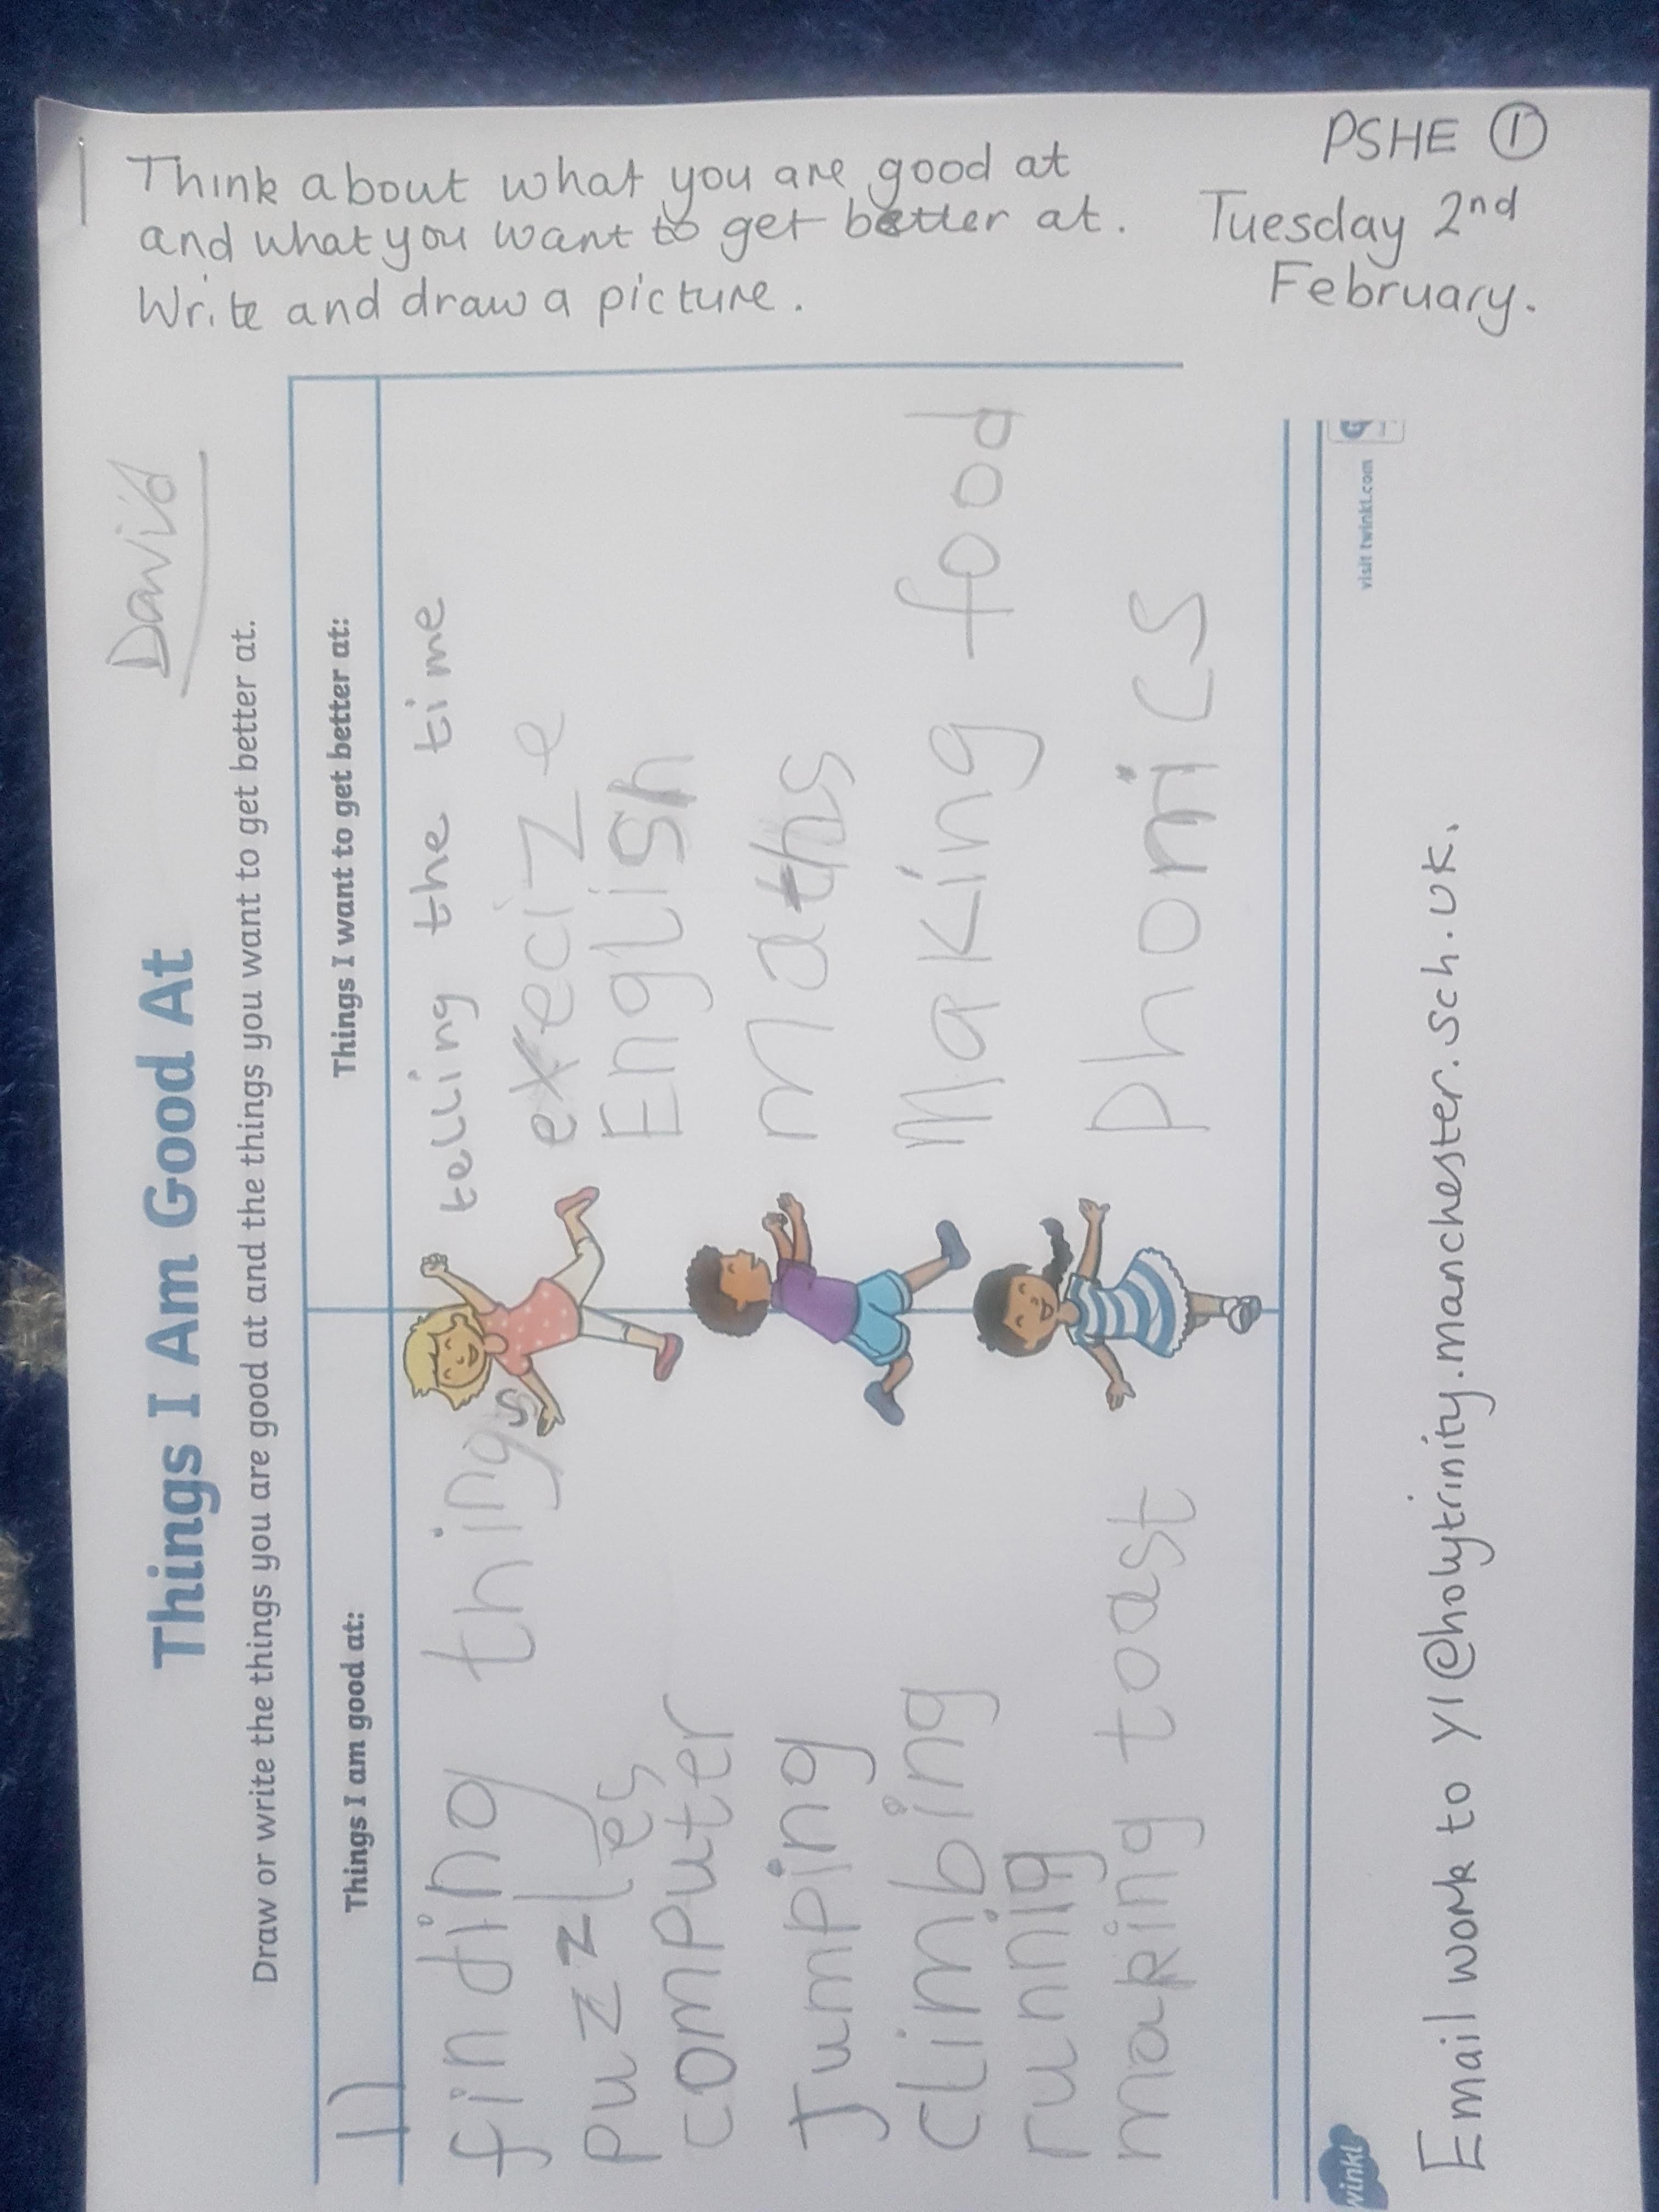 Think about what you are good at
and what you want to get better at.
Write and draw a picture.
PSHE ①
Tuesday 2nd
February.
David
Things I Am Good At
Draw or write the things you are good at and the things you want to get better at.
Things I am good at:
finding things
puzzles
computer
Jumping
climbing
running
making toast
Things I want to get better at:
telling the time
execize
English
maths
Making food
phonics
winkl
visit twinkl.com
Email work to Y1@holytrinity.manchester.sch.uk.